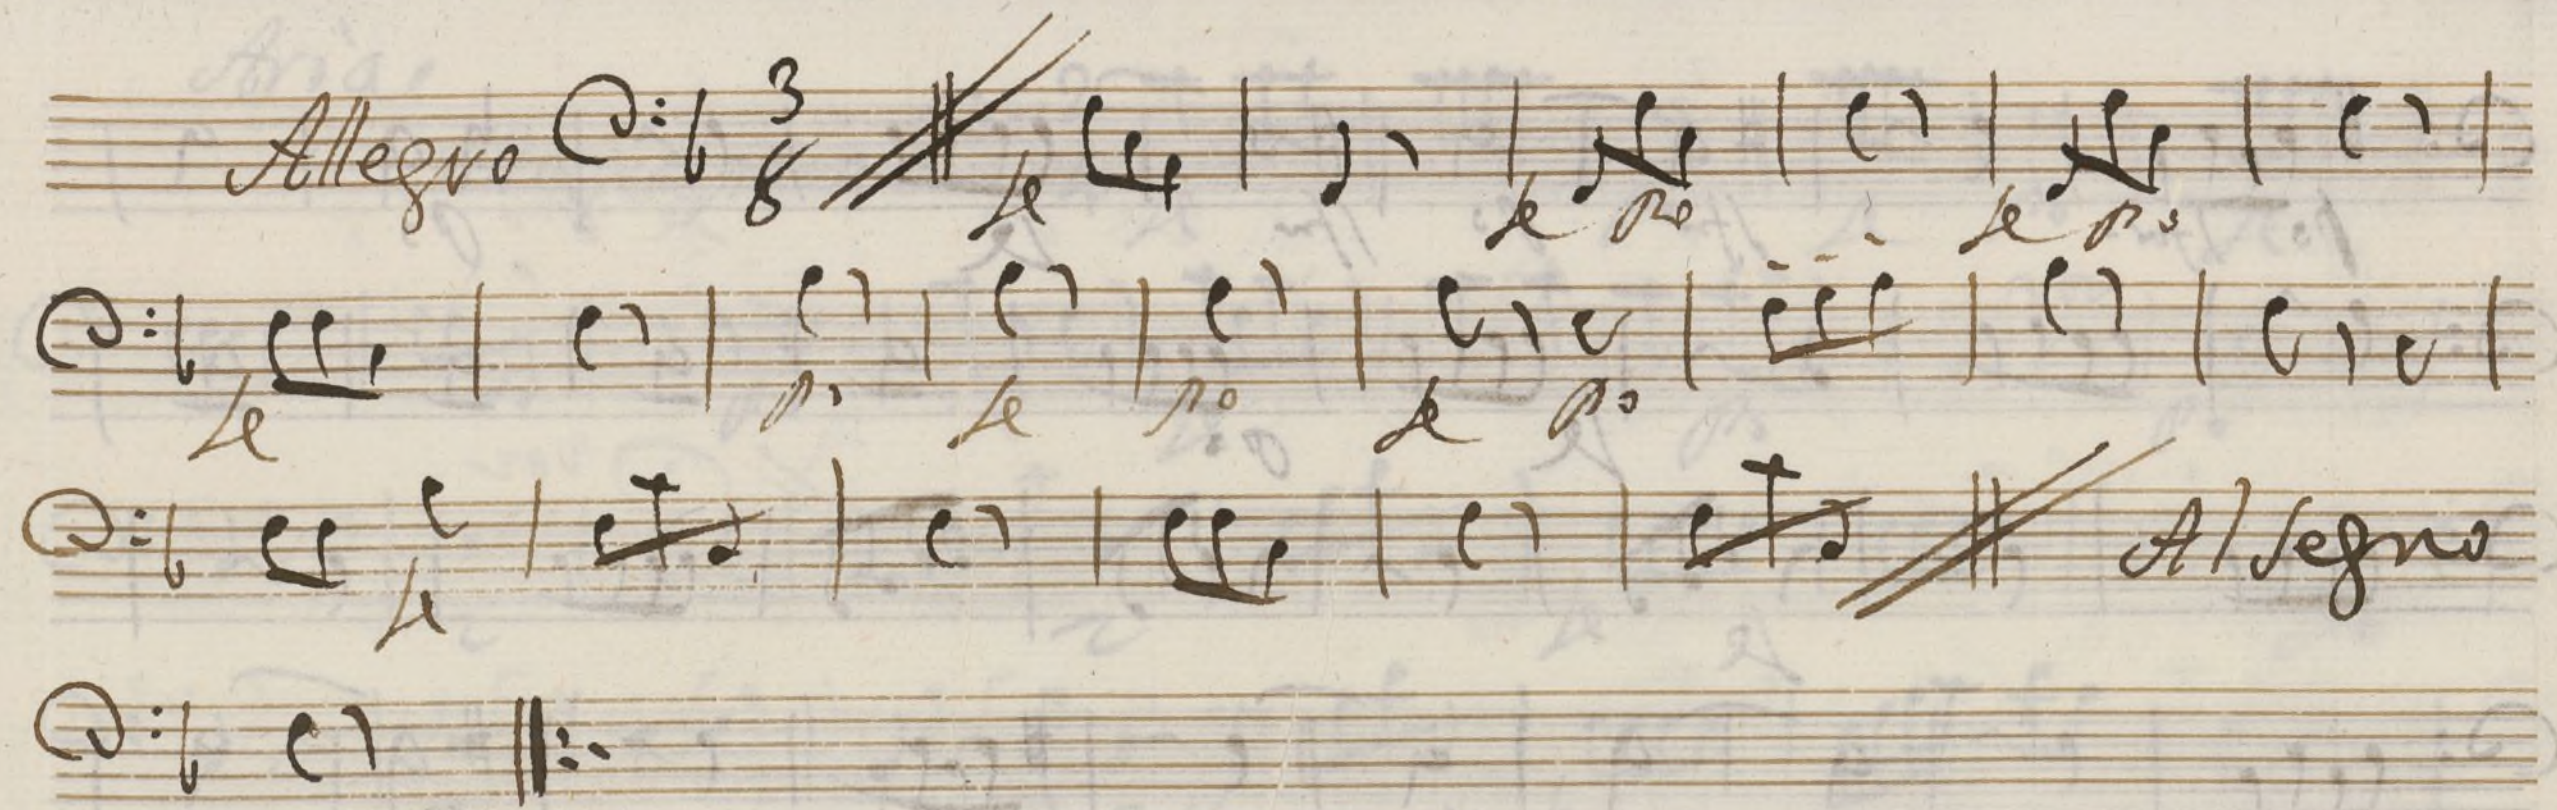 Allegro 3 8
fe fe po fe po
fe po fe po fe po
fe Al Segno